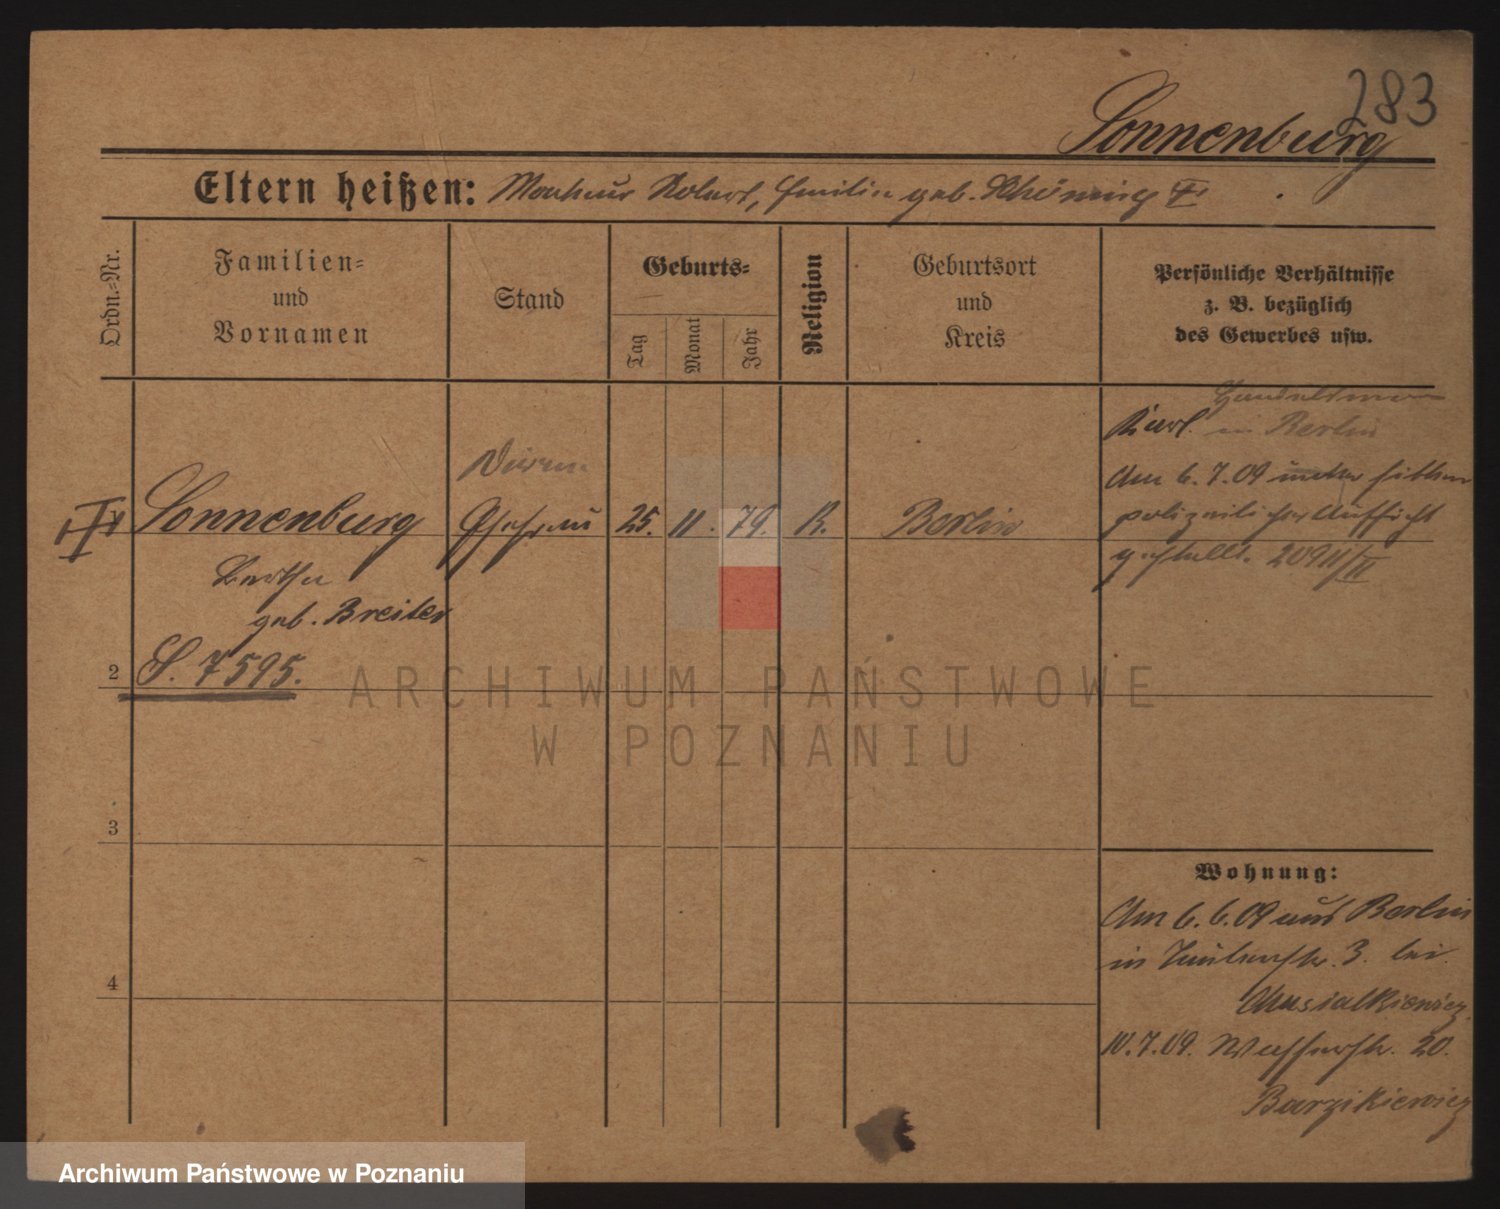 283
Sonnenburg
Eltern heißen: Robert, Emilie geb.
Ordn.-Nr.
Familien-
und
Vornamen
Stand
Geburts-
Tag
Monat
Jahr
Religion
Geburtsort
und
Kreis
Persönliche Verhältnisse
z. B. bezüglich
des Gewerbes usw.
Handelsmann
Karl in Berlin
Sonnenburg
Dirne
Ehefrau
25. 11. 79. K.
Berlin
Am 6.7.09 unter sitten
polizeilicher Aufsicht
gestellt. 2091/II
Bertha
geb. Breiter
2
S. 7595.
3
4
Wohnung:
Am 6.6.09 aus Berlin
in 3. bei
Musialkiewicz
10.7.09. Wasserstr. 20.
Barzikiewicz
ARCHIWUM PAŃSTWOWE
W POZNANIU
Archiwum Państwowe w Poznaniu